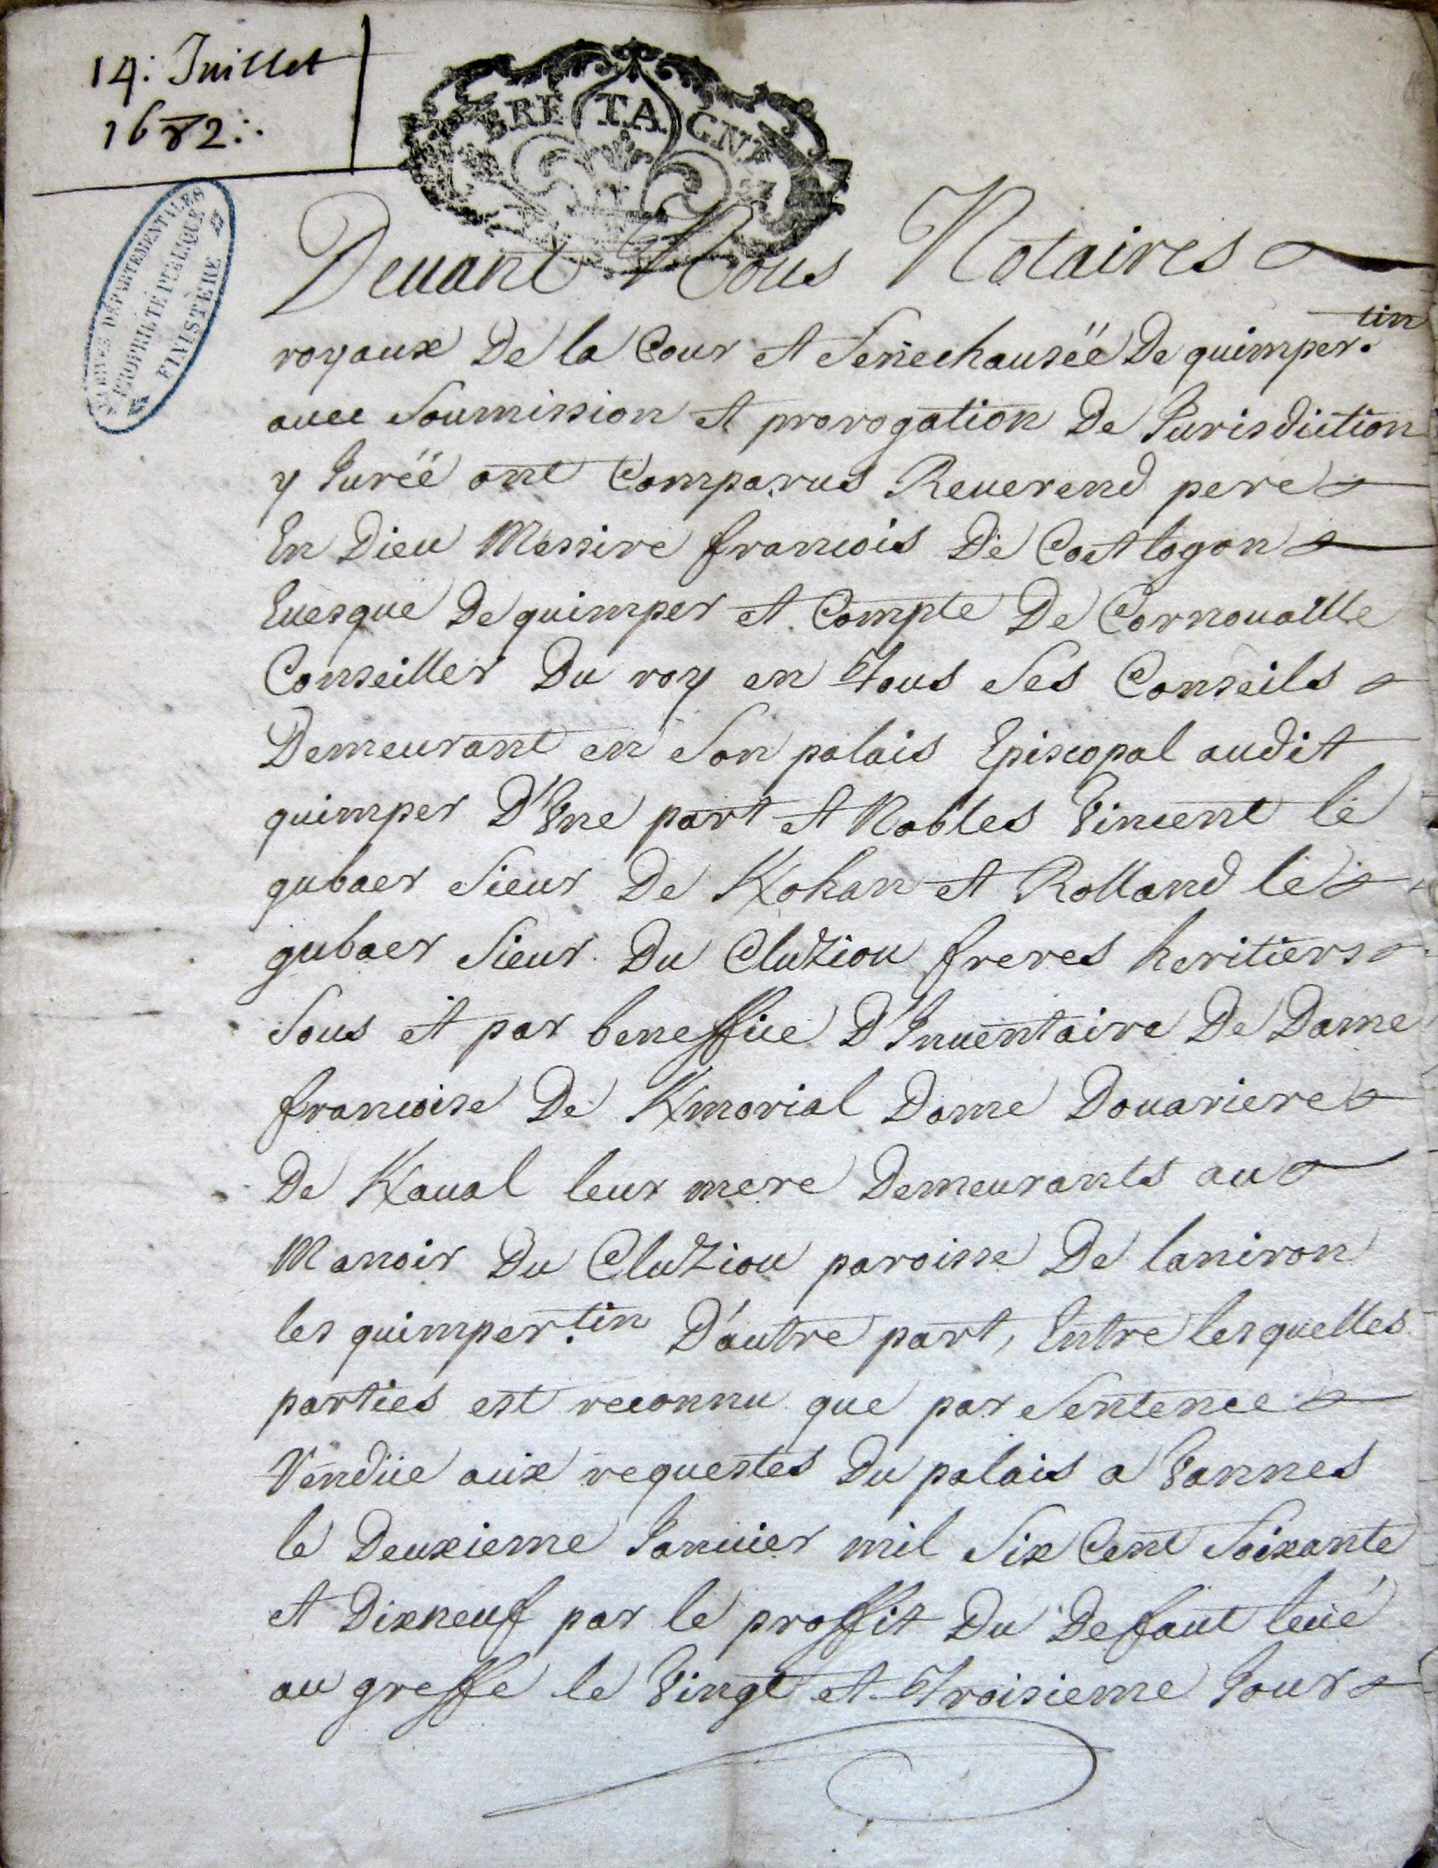 14: Juillet
1682:.
BRETAGNE
ARCHIVES DÉPARTEMENTALES
PROPRIÉTÉ PUBLIQUE
FINISTÈRE
Deuant Nous Notaires
royaux De la Cour et Senechauséé De quimper.tin
auec Soumission et prorogation De Jurisdiction
y Juréé ont Comparus Reuerend pere
En Dieu Messire francois De Coetlogon
Euesque De quimper et Compte De Cornouaille
Conseiller Du roy en tous Ses Conseils
Demeurant en Son palais Episcopal audit
quimper D'Vne part et Nobles Vincent le
gubaer Sieur De Kohan et Rolland le
gubaer Sieur Du Cluziou freres heritiers
Sous et par beneffice D'Inuentaire De Dame
francoise De Kmorial Dame Douariere
De Kaual leur mere Demeurants au
Manoir Du Cluziou paroisse De laniron
les quimper.tin D'autre part, Entre lesquelles
parties est reconnu que par Sentence
Rendüe aux requestes Du palais a Vannes
le Deuxieme Januier mil Six Cent Soixante
et Dixneuf par le proffit Du Defaut leué
au greffe le Vingt et troisieme Jour